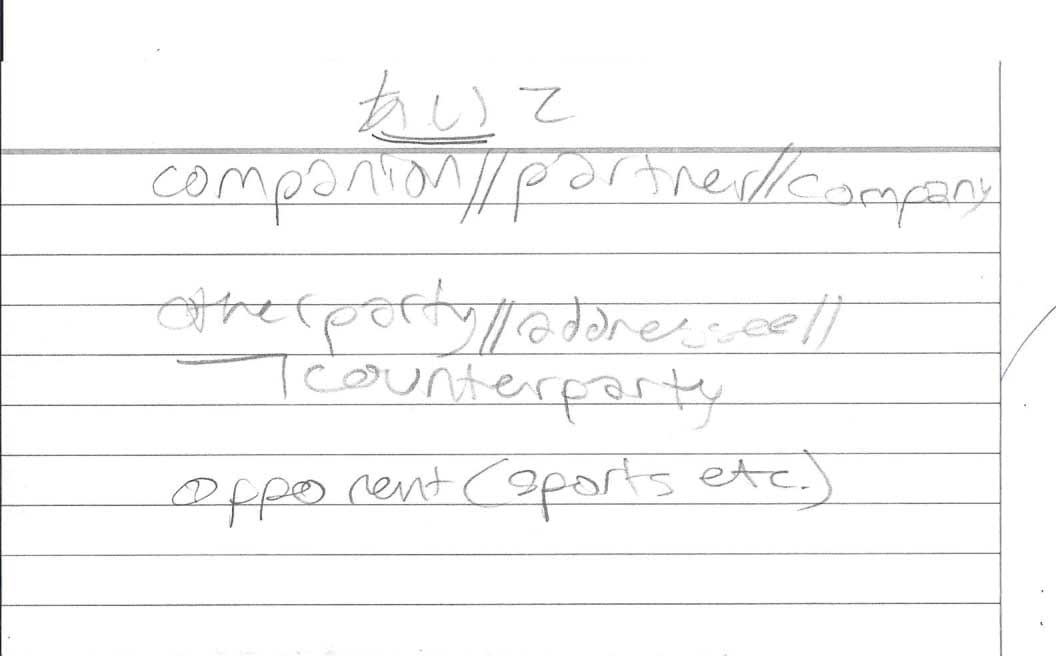 あいて
companion//partner//company
other party//addressee//
counterparty
opponent (sports etc.)